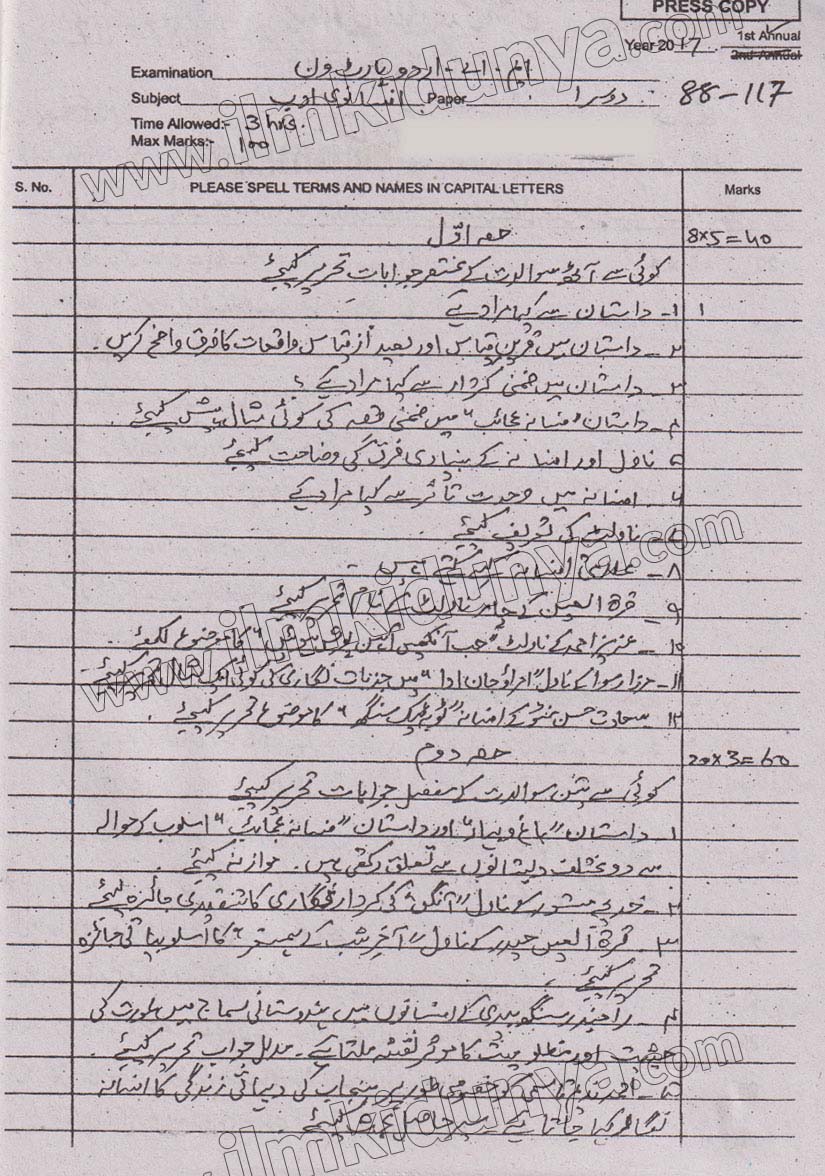 PRESS COPY
1st Annual
Year 2017
2nd Annual
Examination ایم ۔ اے ۔ اردو پارٹ ون
Subject افسانوی ادب Paper دوسرا 88-117
Time Allowed:- 3 hrs.
Max Marks:- 100
S. No. PLEASE SPELL TERMS AND NAMES IN CAPITAL LETTERS Marks
حصہ اوّل 8x5=40
کوئی سے آٹھ سوالات کے مختصر جوابات تحریر کیجئے
۱۔ داستان سے کیا مراد ہے
۲۔ داستان میں قرین قیاس اور بعید از قیاس واقعات کا فرق واضح کریں۔
۳۔ داستان میں ضمنی کردار سے کیا مراد ہے ؟
۴۔ داستان "فسانہ عجائب" میں ضمنی قصہ کی کوئی مثال پیش کیجئے۔
۵ ناول اور افسانہ کے بنیادی فرق کی وضاحت کیجئے
۶۔ افسانہ میں وحدت تاثر سے کیا مراد ہے
۷۔ ناولٹ کی تعریف کیجئے
۸۔ علامتی افسانہ کسے کہتے ہیں۔
۹۔ قرۃ العین کے چار ناولٹ کے نام تحریر کیجئے
۱۰۔ عزیز احمد کے ناولٹ "جب آنکھیں آہن پوش ہوئیں" کا موضوع لکھئے۔
۱۱۔ مرزا رسوا کے ناول "امراؤ جان ادا" میں جزیات نگاری کی کوئی ایک کیجئے
۱۲۔ سعادت حسن منٹو کے افسانہ "ٹوبہ ٹیک سنگھ" کا موضوع تحریر کیجئے۔
حصہ دوم 20x3=60
کوئی سے تین سوالات کے مفصل جوابات تحریر کیجئے
۱۔ داستان "باغ و بہار" اور داستان "فسانہ عجائب" اسلوب کے حوالے
سے دو مختلف دبستانوں سے تعلق رکھتی ہیں۔ موازنہ کیجئے۔
۲۔ خدیجہ مستور کے ناول "آنگن" کی کردار نگاری کا تنقیدی جائزہ لیجئے
۳۔ قرۃ العین حیدر کے ناول "آخر شب کے ہمسفر" کا اسلوبیاتی جائزہ
تحریر کیجئے۔
۴۔ راجندر سنگھ بیدی کے افسانوں میں ہندوستانی سماج میں عورت کی
حیثیت اور مظلومیت کا موثر نقشہ ملتا ہے۔ مدلل جواب تحریر کیجئے۔
۵۔ احمد ندیم قاسمی کو خصوصی طور پر پنجاب کی دیہاتی زندگی کا افسانہ
نگار کہا جاتا ہے۔ سیر حاصل تبصرہ کیجئے۔
www.ilmkidunya.com
www.ilmkidunya.com
www.ilmkidunya.com